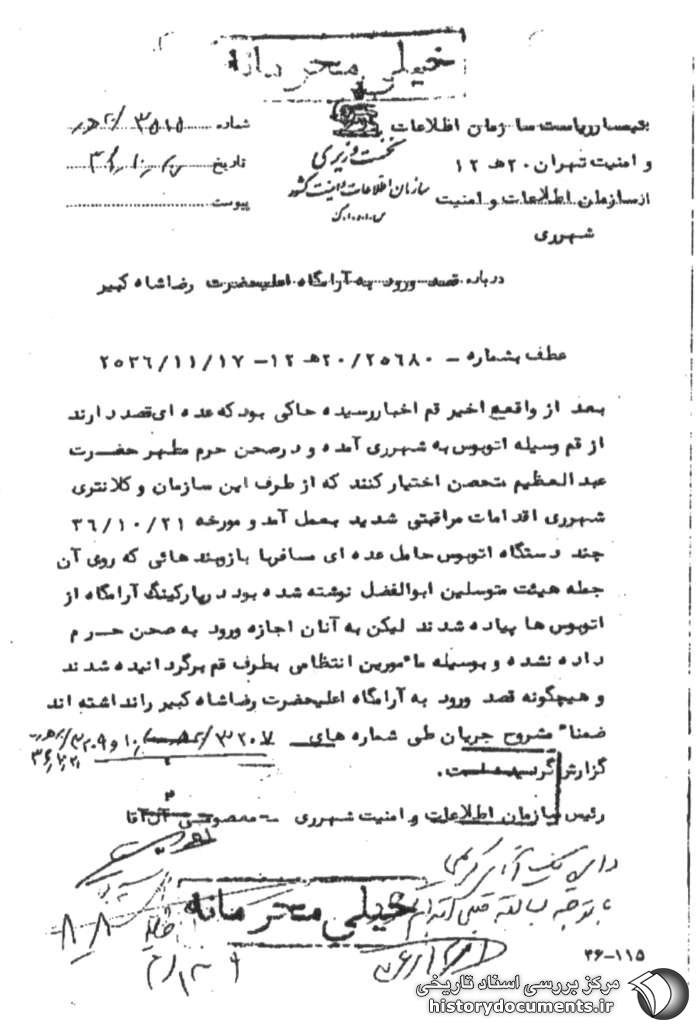 خیلی محرمانه
بتیمسار ریاست سازمان اطلاعات
و امنیت تهران ۲۰هـ ۱۲
از سازمان اطلاعات و امنیت
شهرری
نخست وزیری
سازمان اطلاعات و امنیت کشور
س.ا.و.ا.ک
شماره
تاریخ
پیوست
درباره قصد ورود به آرامگاه اعلیحضرت رضاشاه کبیر
عطف بشماره – ۲۰/۲۵۶۸۰هـ ۱۲ – ۲۵۳۶/۱۱/۱۷
بعد از وقایع اخیر قم اخبار رسیده حاکی بود که عده ای قصد دارند
از قم وسیله اتوبوس به شهرری آمده و در صحن حرم مطهر حضرت
عبدالعظیم متحصن اختیار کنند که از طرف این سازمان و کلانتری
شهرری اقدامات مراقبتی شدید بعمل آمد و مورخه ۳۶/۱۰/۲۱
چند دستگاه اتوبوس حامل عده ای مسافر با بازوبند هائی که روی آن
جمله هیئت متوسلین ابوالفضل نوشته شده بود در پارکینگ آرامگاه از
اتوبوس ها پیاده شدند لیکن به آنان اجازه ورود به صحن حرم
داده نشده و بوسیله مأمورین انتظامی بطرف قم برگردانیده شدند
و هیچگونه قصد ورود به آرامگاه اعلیحضرت رضاشاه کبیر را نداشته اند
ضمناً مشروح جریان طی شماره های ۳۲۰۷/
گزارش گردیده است.
رئیس سازمان اطلاعات و امنیت شهرری – معصومی آل آقا
خیلی محرمانه
با توجه
۳۶-۱۱۵
مرکز بررسی اسناد تاریخی
historydocuments.ir